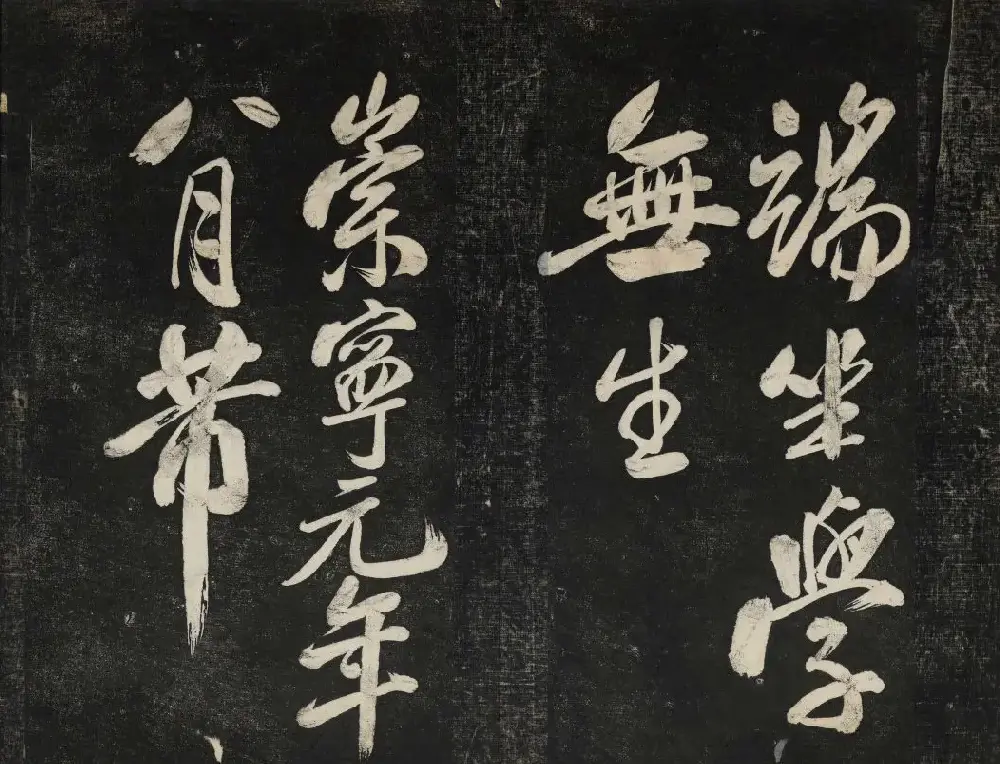 端坐學
無生
崇寧元年
八月芾